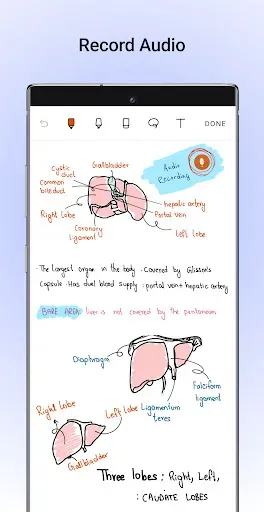 Record Audio
T DONE
Cystic
duct
Gallbladder
Common
bile duct
Audio
Recording
hepatic artery
Portal vein
Right lobe
Coronary
ligament
Left lobe
· The largest organ in the body · Covered by Glisson's
Capsule · Has dual blood supply : portal vein + hepatic artery
BARE AREA: liver is not covered by the peritoneum
Diaphragm
Falciform
ligament
Right lobe
Left lobe
Ligamentum
teres
Gallbladder
Three lobes : Right, Left,
: CAUDATE LOBES